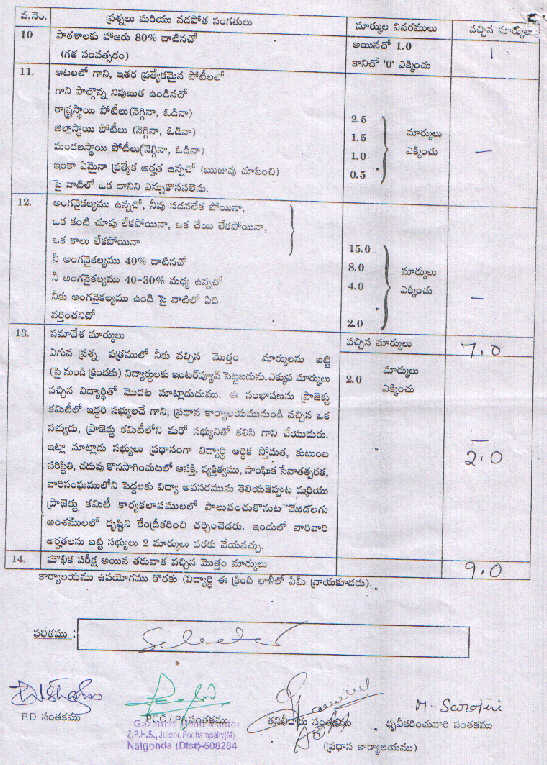 వ.నెం. ప్రశ్నలు మరియు వడపోత సంగతులు మార్కుల వివరములు వచ్చిన మార్కులు
10 పాఠశాలకు హాజరు 80% దాటినచో అయినచో 1.0 1
(గత సంవత్సరం) కానిచో '0' ఎక్కించు
11. ఆటలలో గాని, ఇతర ప్రత్యేకమైన పోటీలలో
గాని పాల్గొన్న నిపుణుత ఉండినచో
రాష్ట్రస్థాయి పోటీలు(నెగ్గినా, ఓడినా) 2.5
జిల్లాస్థాయి పోటీలు (నెగ్గినా, ఓడినా) 1.5 మార్కులు
మండలస్థాయి పోటీలు(నెగ్గినా, ఓడినా) 1.0 ఎక్కించు —
ఇంకా ఏమైనా ప్రత్యేక అర్హత ఉన్నచో (ఋజువు చూపించి) 0.5
పై వాటిలో ఒక దానిని ఎన్నుకొనవలెను.
12. అంగవైకల్యము ఉన్నచో, నీవు నడవలేక పోయినా,
ఒక కంటి చూపు లేకపోయినా, ఒక చేయి లేకపోయినా,
ఒక కాలు లేకపోయినా 15.0
నీ అంగవైకల్యము 40% దాటినచో 8.0 మార్కులు
నీ అంగవైకల్యము 40-30% మధ్య ఉన్నచో 4.0 ఎక్కించు —
నీకు అంగవైకల్యము ఉండి పై వాటిలో ఏది
వర్తించనిచో 2.0
13. సమావేశ మార్కులు వచ్చిన మార్కులు 7.0
ఎగువ ప్రశ్న పత్రములో నీకు వచ్చిన మొత్తం మార్కులను బట్టి మార్కులు
(పై నుండి క్రిందకు) విద్యార్థులకు ఇంటర్వ్యూవ్ పెట్టబడును. ఎక్కువ మార్కులు 2.0 ఎక్కించు
వచ్చిన విద్యార్థితో మొదట మాట్లాడుదుము. ఈ సంభాషణను ప్రాజెక్టు
కమిటీలో ఇద్దరి సభ్యులచే గాని, ప్రధాన కార్యాలయమునుండి వచ్చిన ఒక
సభ్యుడు, ప్రాజెక్టు కమిటీలోని మరో సభ్యునితో కలిసి గాని చేయుదురు. —
ఇట్లా మాట్లాడు సభ్యులు ప్రధానంగా విద్యార్థి ఆర్థిక స్తోమత, కుటుంబ 2.0
పరిస్థితి, చదువు కొనసాగించుటలో ఆసక్తి, వ్యక్తిత్వము, సాంఘిక సేవాతత్పరత,
వారిసంఘములోని పెద్దలకు విద్యా అవసరమును తెలియజెప్పుట మరియు
ప్రాజెక్టు కమిటీ కార్యకలాపములలో పాలుపంచుకొనుట మొదలగు
అంశములలో దృష్టిని కేంద్రీకరించి చర్చించెదరు. ఇందులో వారివారి
అర్హతలను బట్టి సభ్యులు 2 మార్కుల వరకు వేయవచ్చు.
14. మౌఖిక పరీక్ష అయిన తరువాత వచ్చిన మొత్తం మార్కులు 9.0
కార్యాలయము ఉపయోగము కొరకు (విద్యార్థి ఈ క్రింది లానిలో ఏమీ వ్రాయకూడదు).
ఫలితము : Selected
M. Sarojini
P.D సంతకము సంతకము తనిఖీదారు సంతకము ధృవీకరించువారి సంతకము
Z.P.H.S., (M)
Nalgonda (Dist)-508284 (ప్రధాన కార్యాలయము)